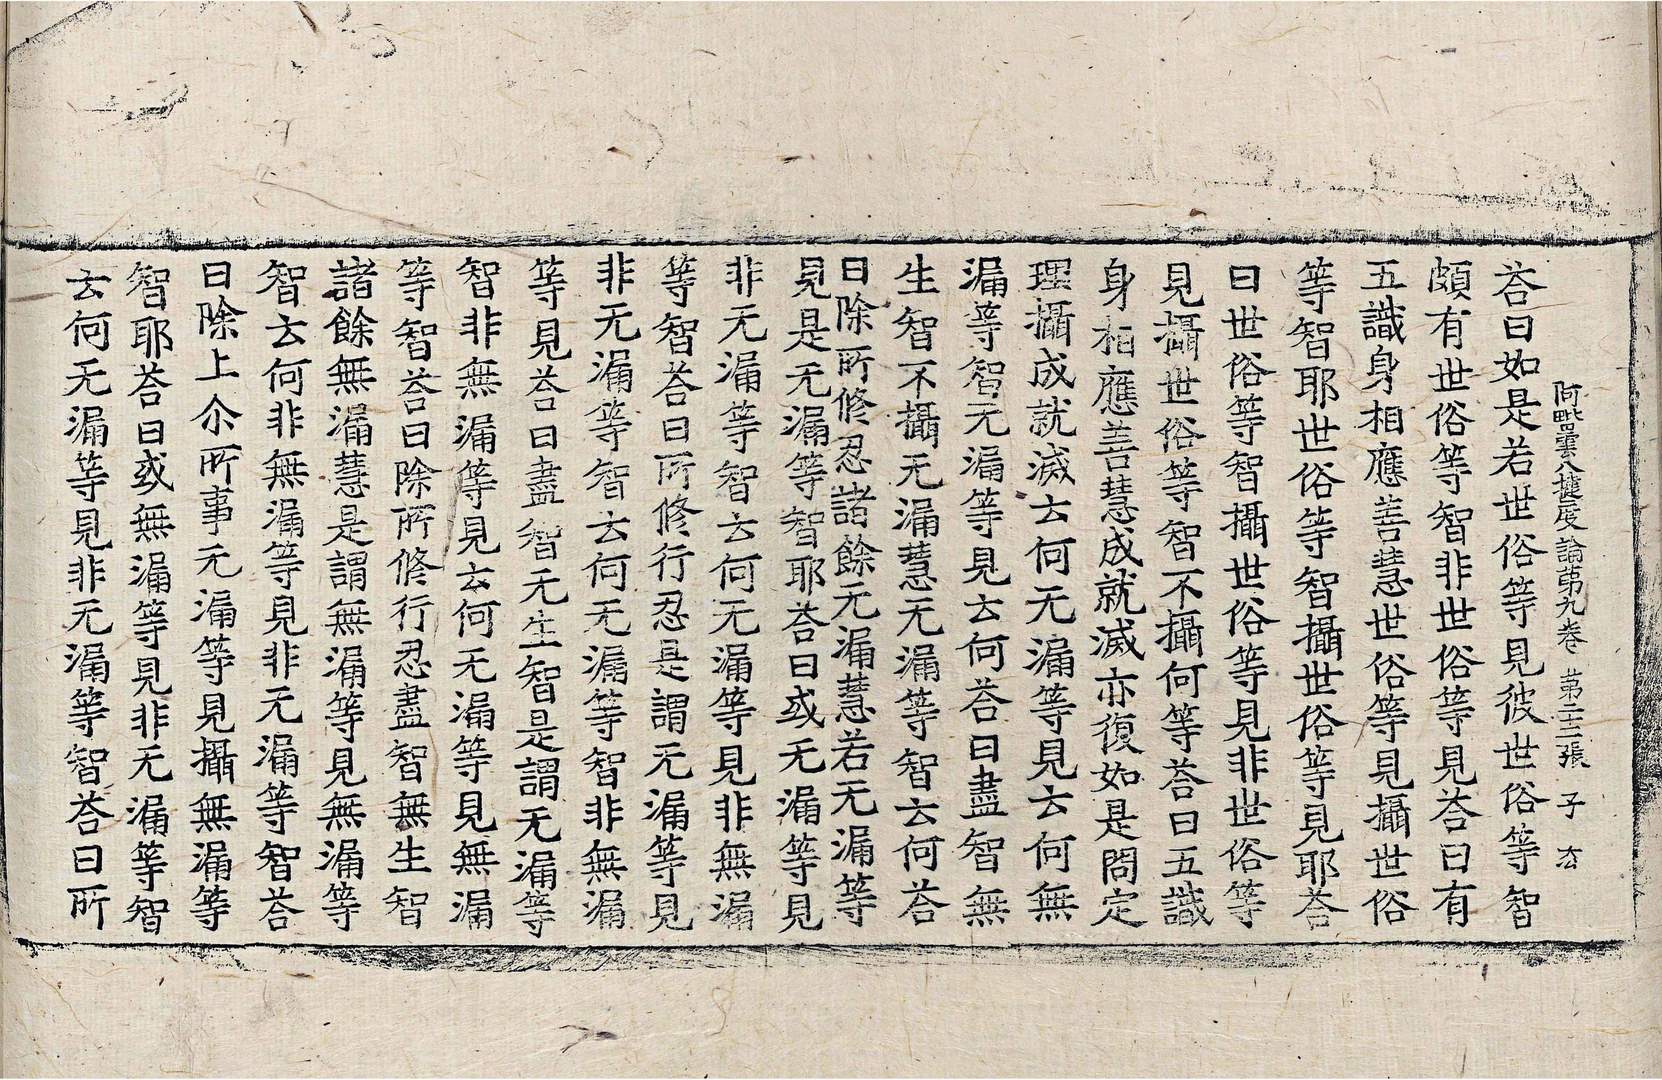 阿毗曇八揵度論第九卷 第二十三張 子 夳
荅曰如是若世俗等見彼世俗等智
頗有世俗等智非世俗等見荅曰有
五識身相應善慧世俗等見攝世俗
等智耶世俗等智攝世俗等見耶荅
曰世俗等智攝世俗等見非世俗等
見攝世俗等智不攝何等荅曰五識
身相應善慧成就滅亦復如是問定
理攝成就滅云何无漏等見云何無
漏等智无漏等見云何荅曰盡智無
生智不攝无漏慧无漏等智云何荅
曰除所修忍諸餘无漏慧若无漏等
見是无漏等智耶荅曰或无漏等見
非无漏等智云何无漏等見非無漏
等智荅曰所修行忍是謂无漏等見
非无漏等智云何无漏等智非無漏
等見荅曰盡智无生智是謂无漏等
智非無漏等見云何无漏等見無漏
等智荅曰除所修行忍盡智無生智
諸餘無漏慧是謂無漏等見無漏等
智云何非無漏等見非无漏等智荅
曰除上尒所事无漏等見攝無漏等
智耶荅曰或無漏等見非无漏等智
云何无漏等見非无漏等智荅曰所